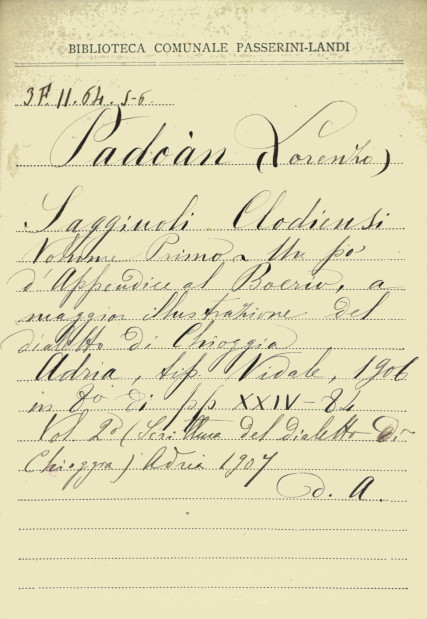 BIBLIOTECA COMUNALE PASSERINI-LANDI
3F.11.64.5-6
Padoàn (Lorenzo)
Saggiuoli Clodiensi
Volume Primo - Un pò
d'Appendice al Boerio, a
maggior illustrazione del
dialetto di Chioggia
Adria, tip. Vidale, 1906
in 8° di pp XXIV-84
Vol. 2° (Scrittura del dialetto di
Chioggia) Adria 1907
d. A.